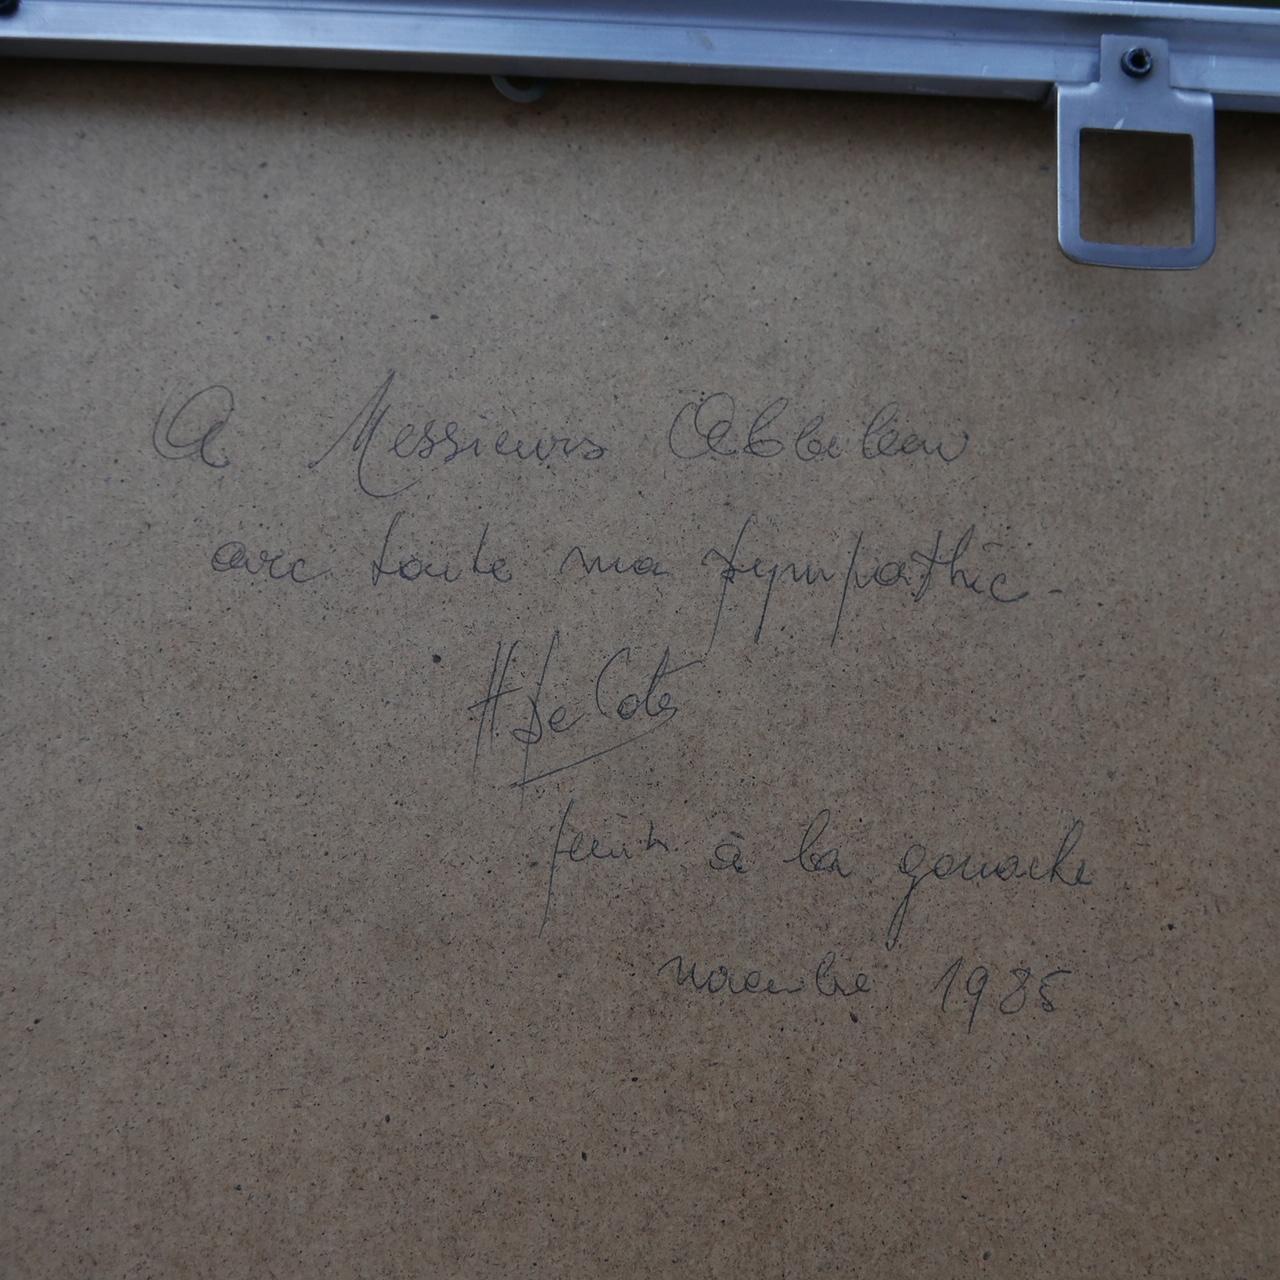 A Messieurs
avec toute ma sympathie -
H. de
peint à la gouache
novembre 1985